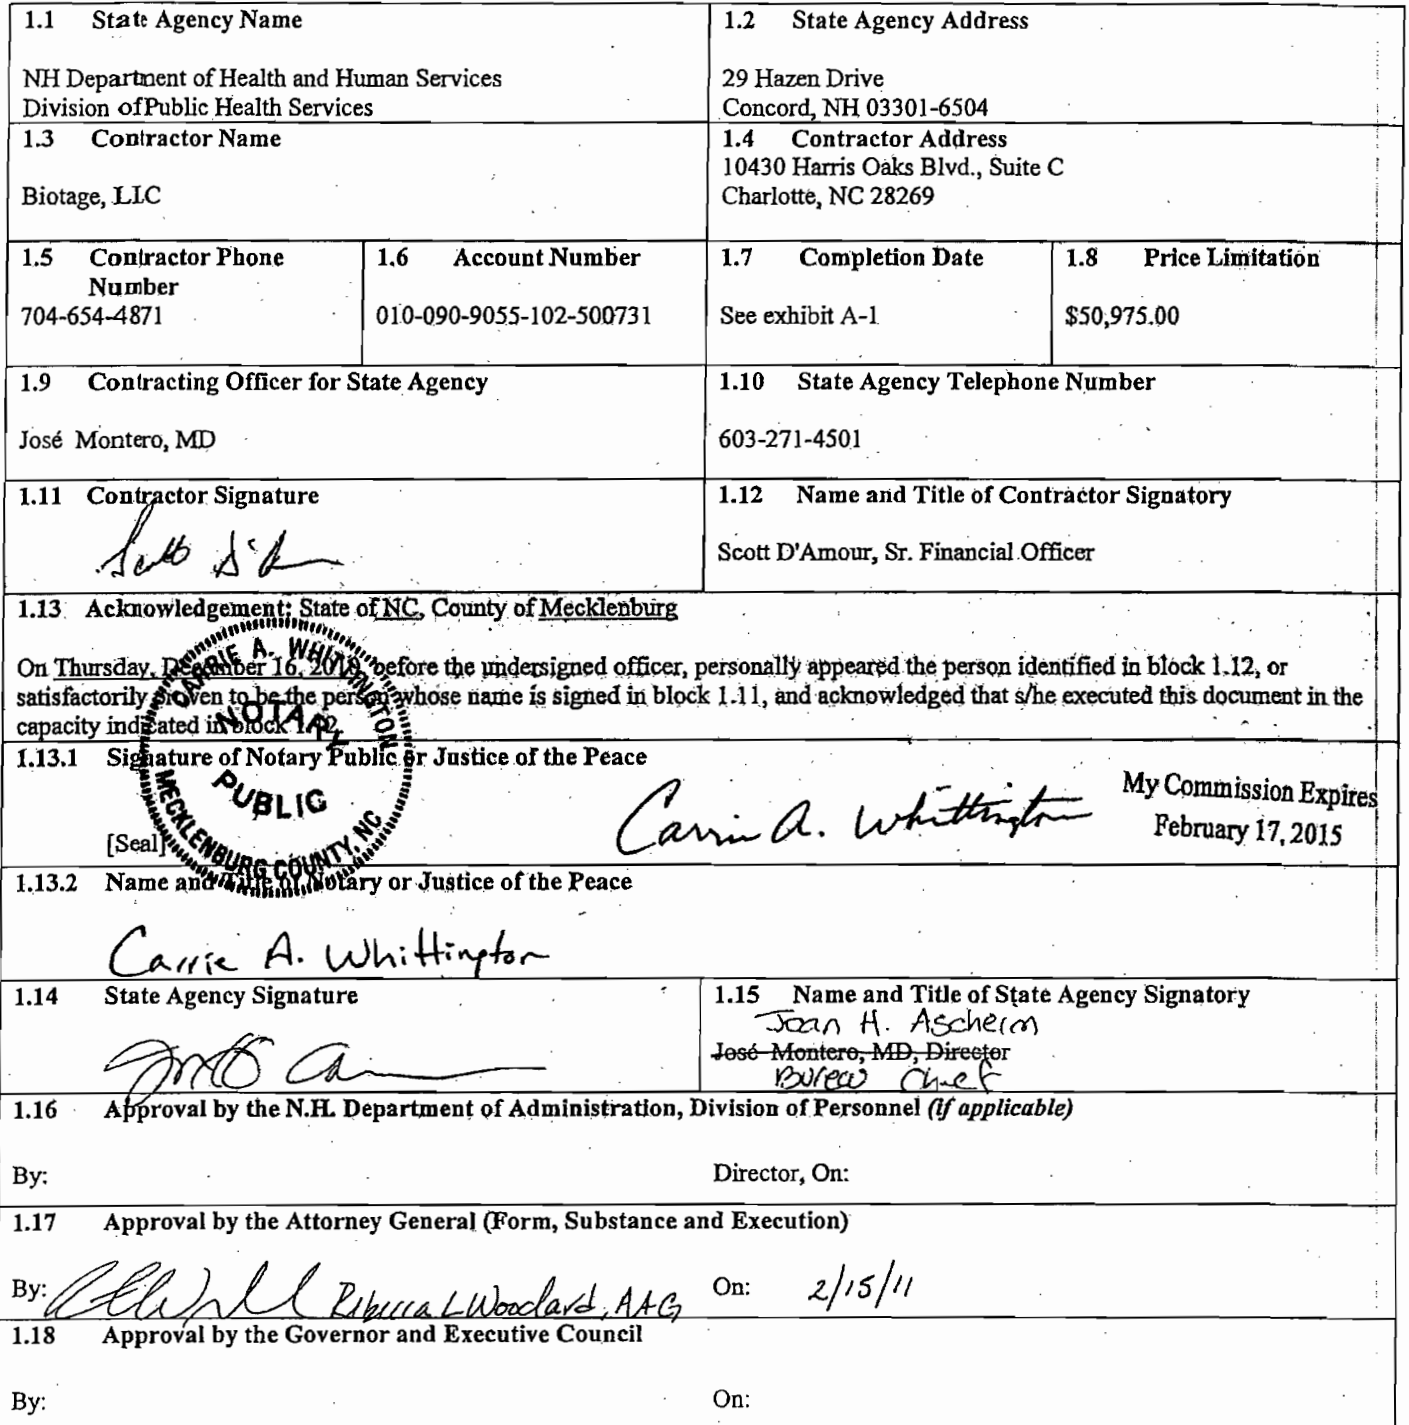 1.1 State Agency Name
NH Department of Health and Human Services
Division of Public Health Services
1.2 State Agency Address
29 Hazen Drive
Concord, NH 03301-6504
1.3 Contractor Name
Biotage, LLC
1.4 Contractor Address
10430 Harris Oaks Blvd., Suite C
Charlotte, NC 28269
1.5 Contractor Phone
Number
704-654-4871
1.6 Account Number
010-090-9055-102-500731
1.7 Completion Date
See exhibit A-1
1.8 Price Limitation
$50,975.00
1.9 Contracting Officer for State Agency
José Montero, MD
1.10 State Agency Telephone Number
603-271-4501
1.11 Contractor Signature
1.12 Name and Title of Contractor Signatory
Scott D'Amour, Sr. Financial Officer
1.13 Acknowledgement: State of NC, County of Mecklenburg
On Thursday, December 16, 2010, before the undersigned officer, personally appeared the person identified in block 1.12, or
satisfactorily proven to be the person whose name is signed in block 1.11, and acknowledged that s/he executed this document in the
capacity indicated in block 1.12.
CARRIE A. WHITTINGTON
NOTARY
PUBLIC
MECKLENBURG COUNTY, NC
1.13.1 Signature of Notary Public or Justice of the Peace
[Seal]
Carrie A. Whittington
My Commission Expires
February 17, 2015
1.13.2 Name and Title of Notary or Justice of the Peace
Carrie A. Whittington
1.14 State Agency Signature
1.15 Name and Title of State Agency Signatory
Joan H. Ascheim
José Montero, MD, Director
Bureau Chief
1.16 Approval by the N.H. Department of Administration, Division of Personnel (if applicable)
By:
Director, On:
1.17 Approval by the Attorney General (Form, Substance and Execution)
By: Rebecca L Woodard, AAG
On: 2/15/11
1.18 Approval by the Governor and Executive Council
By:
On: